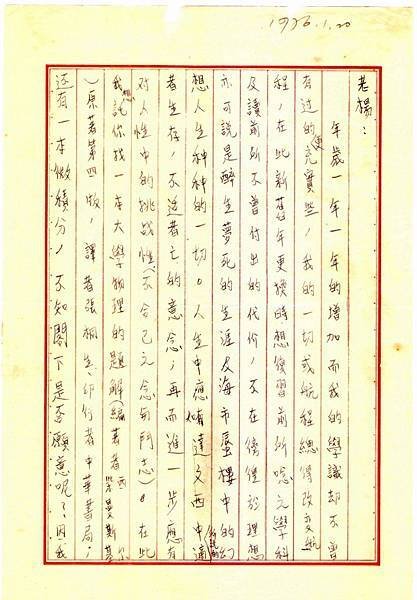 1976.1.20
老楊：
年歲一年一年的增加而我的學識却不曾
有过的充實些，我的一切或航程總得改变航
程，在此新舊年更換時想復習前所唸之學科
及讀前所不曾付出的代价，不在徬徨於理想
亦可說是醉生夢死的生涯及海市蜃樓中的幻
想人生种种的一切。人生中應哺達文西中所說的適
者生存，不适者亡的意念，再而進一步應有
对人性中的挑战性(不合己之念与鬥志)。在此
我想託你找一本大學物理的題解(編著者西爾曼斯基
)原著第四版，譯者張桐生，印行者中華書局，
还有一本微積分，不知閣下是否願意呢？因我